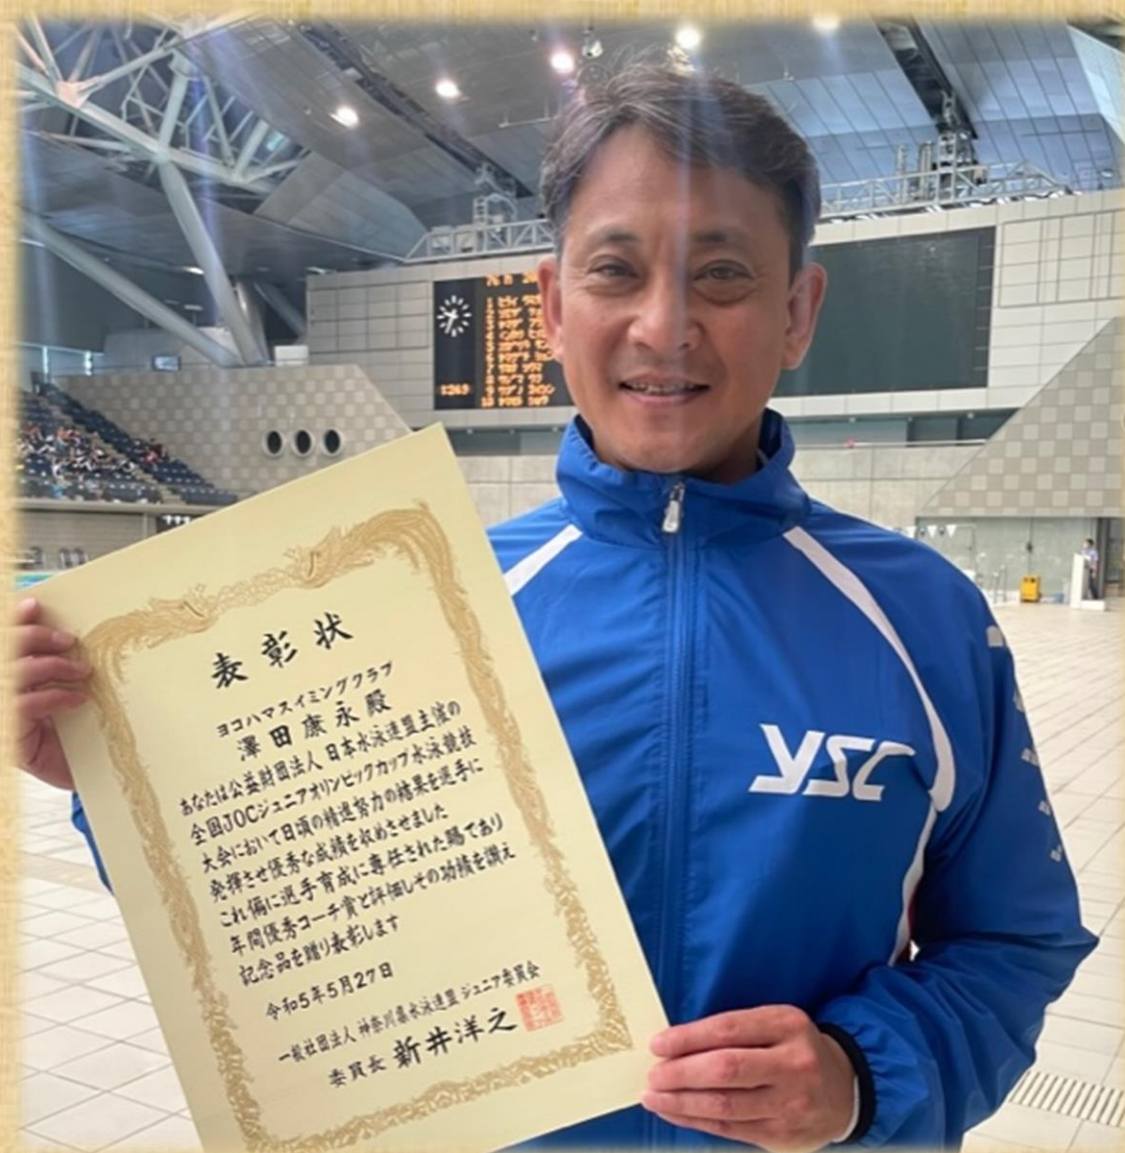 表彰状
ヨコハマスイミングクラブ
澤田康永殿
あなたは公益財団法人 日本水泳連盟主催の
全国JOCジュニアオリンピックカップ水泳競技
大会において日頃の精進努力の結果を選手に
発揮させ優秀な成績を収めさせました
これ偏に選手育成に専任された賜であり
年間優秀コーチ賞と評価しその功績を讃え
記念品を贈り表彰します
令和5年5月27日
一般社団法人 神奈川県水泳連盟 ジュニア委員会
委員長 新井洋之
YSC